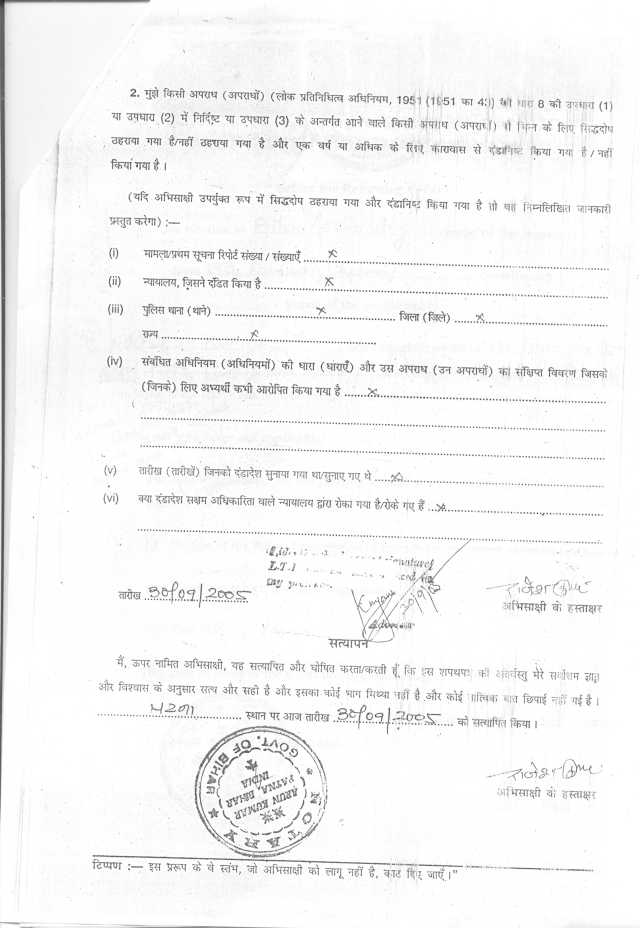 2. मुझे किसी अपराध (अपराधों) (लोक प्रतिनिधित्व अधिनियम, 1951 (1951 का 43) की धारा 8 की उपधारा (1)
या उपधारा (2) में निर्दिष्ट या उपधारा (3) के अन्तर्गत आने वाले किसी अपराध (अपराधों) से भिन्न के लिए सिद्धदोष
ठहराया गया है/नहीं ठहराया गया है और एक वर्ष या अधिक के लिए कारावास से दंडानिष्ट किया गया है / नहीं
किया गया है ।
(यदि अभिसाक्षी उपर्युक्त रूप में सिद्धदोष ठहराया गया और दंडानिष्ट किया गया है तो वह निम्नलिखित जानकारी
प्रस्तुत करेगा) :—
(i) मामला/प्रथम सूचना रिपोर्ट संख्या / संख्याएँ ........ x ........
(ii) न्यायालय, जिसने दंडित किया है ........ x ........
(iii) पुलिस थाना (थाने) ........ x ........ जिला (जिले) ...... x ........
राज्य ........ x ........
(iv) संबंधित अधिनियम (अधिनियमों) की धारा (धाराएँ) और उस अपराध (उन अपराधों) का संक्षिप्त विवरण जिसके
(जिनके) लिए अभ्यर्थी कभी आरोपित किया गया है ........ x ........
(v) तारीख (तारीखें) जिनको दंडादेश सुनाया गया था/सुनाए गए थे ........ x ........
(vi) क्या दंडादेश सक्षम अधिकारिता वाले न्यायालय द्वारा रोका गया है/रोके गए हैं ..... x ........
signature of
L.T.I
my
तारीख 30/09/2005
Advocate
अभिसाक्षी के हस्ताक्षर
सत्यापन
मैं, ऊपर नामित अभिसाक्षी, यह सत्यापित और घोषित करता/करती हूँ कि इस शपथपत्र की अंतर्वस्तु मेरे सर्वोत्तम ज्ञान
और विश्वास के अनुसार सत्य और सही है और इसका कोई भाग मिथ्या नहीं है और कोई तात्विक बात छिपाई नहीं गई है ।
पटना ........ स्थान पर आज तारीख 30/09/2005 ...... को सत्यापित किया ।
अभिसाक्षी के हस्ताक्षर
NOTARY
GOVT. OF BIHAR
ARUN KUMAR
PATNA, BIHAR
INDIA
टिप्पण :— इस प्ररूप के वे स्तंभ, जो अभिसाक्षी को लागू नहीं है, काट दिए जाएँ ।"